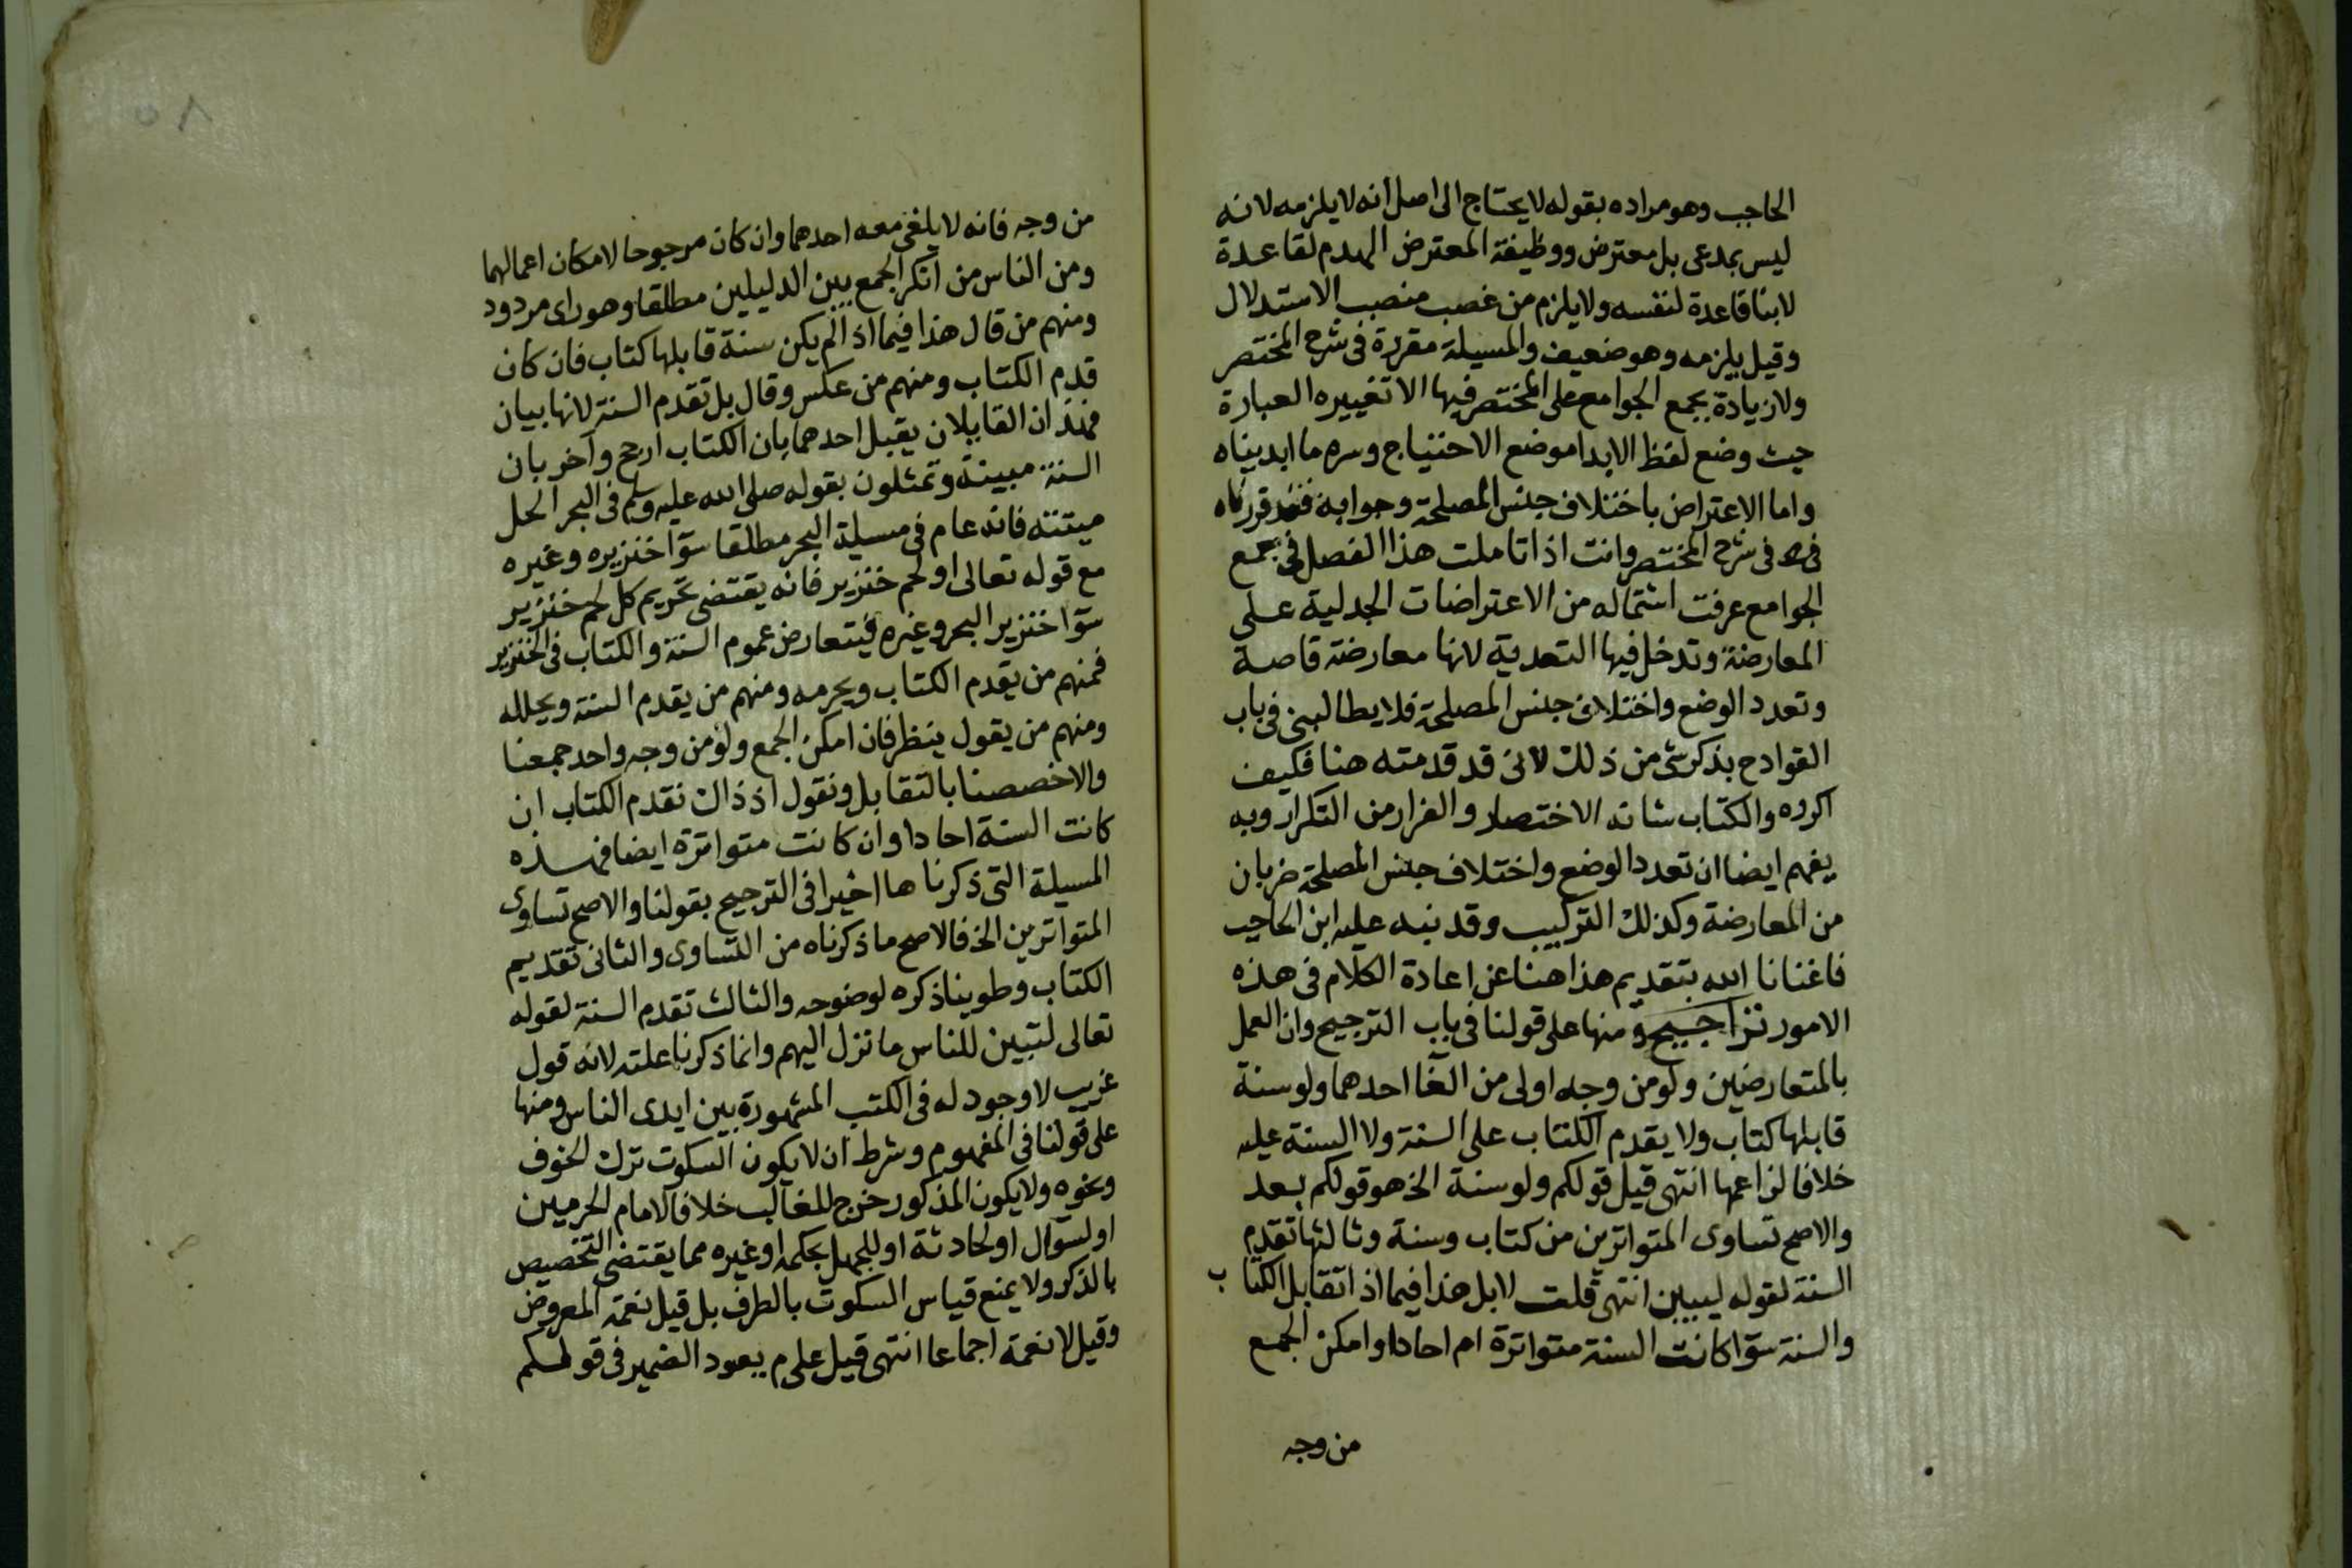 الحاجب وهو مراده بقوله لا يحتاج الى اصل انه لا يلزمه لانه
ليس بمدعى بل معترض ووظيفة المعترض الهدم لقاعدة
لا بنا قاعدة لنفسه ولا يلزم من غصب منصب الاستدلال
وقيل يلزمه وهو ضعيف والمسيلة مقررة فى شرح المختصر
ولا زيادة بجمع الجوامع على المختصر فيها الا تغييره العبارة
حيث وضع لفظ الابدا موضع الاحتياج وسره ما ابديناه
واما الاعتراض باختلاف جنس المصلحة وجوابه فقد قررناه
فى شرح المختصر وانت اذا تاملت هذا الفصل فى جمع
الجوامع عرفت اشتماله من الاعتراضات الجدلية على
المعارضة وتدخل فيها التعدية لانها معارضة قاصة
وتعدد الوضع واختلاف جنس المصلحة فلا يطالبنى فى باب
القوادح بذكر شى من ذلك لانى قد قدمته هنا فكيف
اكرره والكتاب شانه الاختصار والفرار من التكرار وبه
يفهم ايضا ان تعدد الوضع واختلاف جنس المصلحة ضربان
من المعارضة وكذلك التركيب وقد نبه عليه ابن الحاجب
فاغنانا الله بتقديم هذا هنا عن اعادة الكلام فى هذه
الامور تراجيح ومنها على قولنا فى باب الترجيح وان العمل
بالمتعارضين ولو من وجه اولى من الغآ احدهما ولو سنة
قابلها كتاب ولا يقدم الكتاب على السنة ولا السنة عليه
خلافا لزاعمها انتهى قيل قولكم ولو سنة الخ هو قولكم بعد
والاصح تساوى المتواترين من كتاب وسنة وثالثها تقدم
السنة لقوله ليبين انتهى قلت لا بل هذا فيما اذا تقابل الكتاب
والسنة سوآ كانت السنة متواترة ام احادا وامكن الجمع
من وجه
من وجه فانه لا يلغى معه احدهما وان كان مرجوحا لامكان اعمالهما
ومن الناس من انكر الجمع بين الدليلين مطلقا وهو راى مردود
ومنهم من قال هذا فيما اذا لم يكن سنة قابلها كتاب فان كان
قدم الكتاب ومنهم من عكس وقال بل تقدم السنة لانها بيان
فهذان القايلان يقبل احدهما بان الكتاب ارجح وآخر بان
السنة مبينة وتمثلون بقوله صلى الله عليه وسلم فى البحر الحل
ميتته فانه عام فى مسيلة البحر مطلقا سوآ خنزيره وغيره
مع قوله تعالى او لحم خنزير فانه يقتضى تحريم كل لحم خنزير
سوآ خنزير البحر وغيره فيتعارض عموم السنة والكتاب فى الخنزير
فمنهم من يقدم الكتاب ويحرمه ومنهم من يقدم السنة ويحلله
ومنهم من يقول ينظر فان امكن الجمع ولو من وجه واحد جمعنا
والا خصصنا بالتقابل ونقول اذ ذاك نقدم الكتاب ان
كانت السنة احادا وان كانت متواترة ايضا فهذه
المسيلة التى ذكرناها اخيرا فى الترجيح بقولنا والاصح تساوى
المتواترين الخ فالاصح ما ذكرناه من التساوى والثانى تقديم
الكتاب وطوينا ذكره لوضوحه والثالث تقدم السنة لقوله
تعالى لتبين للناس ما نزل اليهم وانما ذكرنا علته لانه قول
غريب لا وجود له فى الكتب المشهورة بين ايدى الناس ومنها
على قولنا فى المفهوم وشرط ان لا يكون السكوت ترك لخوف
ونحوه ولا يكون المذكور خرج للغالب خلافا لامام الحرمين
او لسؤال او لحادثة او للجهل بحكمه او غيره مما يقتضى التخصيص
بالذكر ولا يمنع قياس السكوت بالطرف بل قيل نعمه المعروض
وقيل لا نعمه اجماعا انتهى قيل على م يعود الضمير فى قولكم